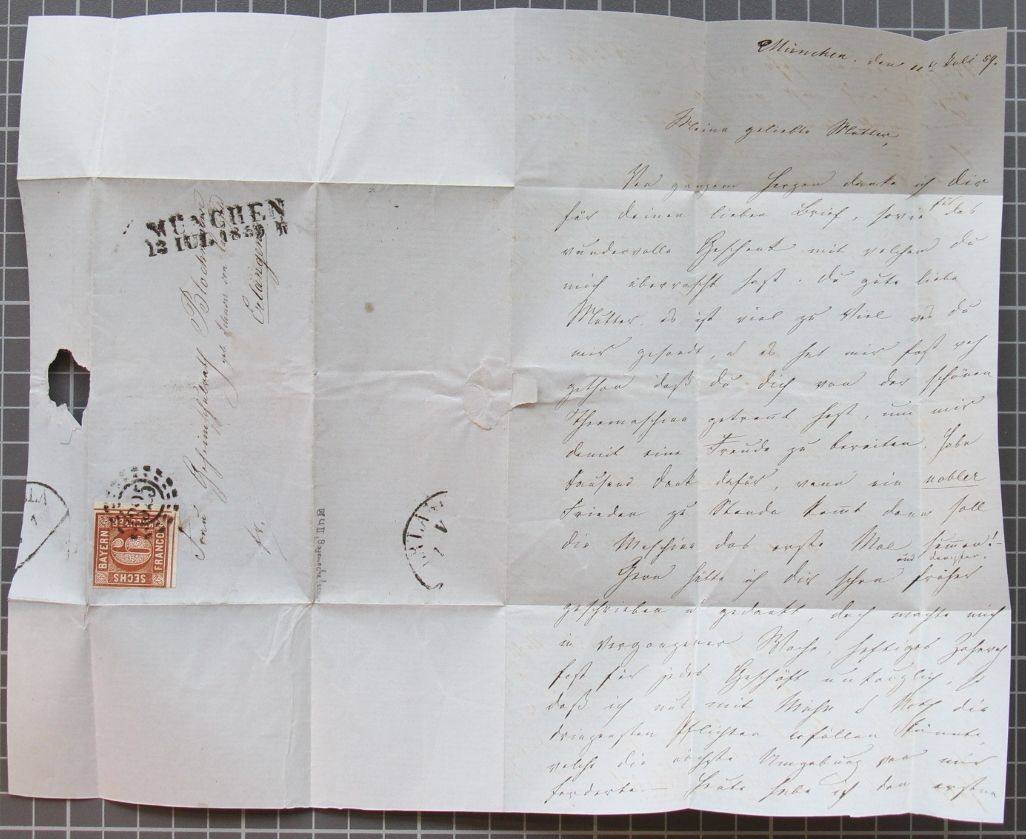 MÜNCHEN
12 IUL. 1859
Frau Geheimräthin
Erlangen
fr.
BAYERN
6
SECHS
FRANCO
325
München, den 11t Juli 59.
Meine geliebte Mutter,
Von ganzem Herzen danke ich dir
für deinen lieben Brief, sowie für das
wundervolle Geschenk mit welchem du
mich überrascht hast. Du gute liebe
Mutter, es ist viel zu Viel was du
mir gesandt, u es hat mir fast weh
gethan daß du dich von der schönen
Theemaschine getrennt hast, um mir
damit eine Freude zu bereiten. Habe
tausend Dank dafür, wenn ein nobler
Frieden zu Stande kommt dann soll
die Maschine das erste Mal summen!
Gern hätte ich dir schon früher
geschrieben u gedankt, doch machte mich
in vergangener Woche, heftiges Zahnweh
fast für jedes Geschäft untauglich, so
daß ich nur mit Mühe u Noth die
dringensten Pflichten erfüllen konnte,
welche die nächste Umgebung von mir
forderte. — Heute habe ich den ersten